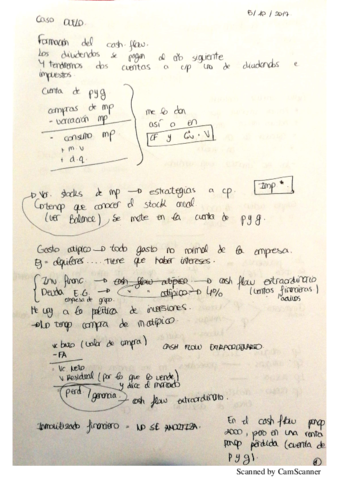 Caso
8/10/2017
Formación del cash flow.
Los dividendos se pagan al año siguiente
Y tendremos dos cuentas a cp una de dividendos e
impuestos
Cuenta de pyg
compras de mp
- variación mp
consumo mp
me lo dan
así o en
CF y Cu · V
+ m.v
+ d.g.
Imp *
Ver stocks de mp → estrategias a cp.
que conocer el stock
(Ver Balance) Se mete en la cuenta de
pyg.
Gasto atípico → todo gasto no normal de la empresa.
Ej = alquileres... tiene que haber intereses.
Inv financ → cash flow atípico → cash flow extraordinario
Deuda E.G atípico → (ventas financieros)
Me voy a la política de inversiones.
→ Lo tengo compra de
(valor de compra) CASH FLOW EXTRAORDINARIO
- FA
Vc neto
v Residual (por lo que lo vende)
y dice el mercado
Perd / ganancia → cash flow extraordinario.
Inmovilizado financiero → NO SE AMORTIZA
En el cash flow pongo
2000, pero en una renta
pongo pérdida (cuenta de
pyg).
Scanned by CamScanner